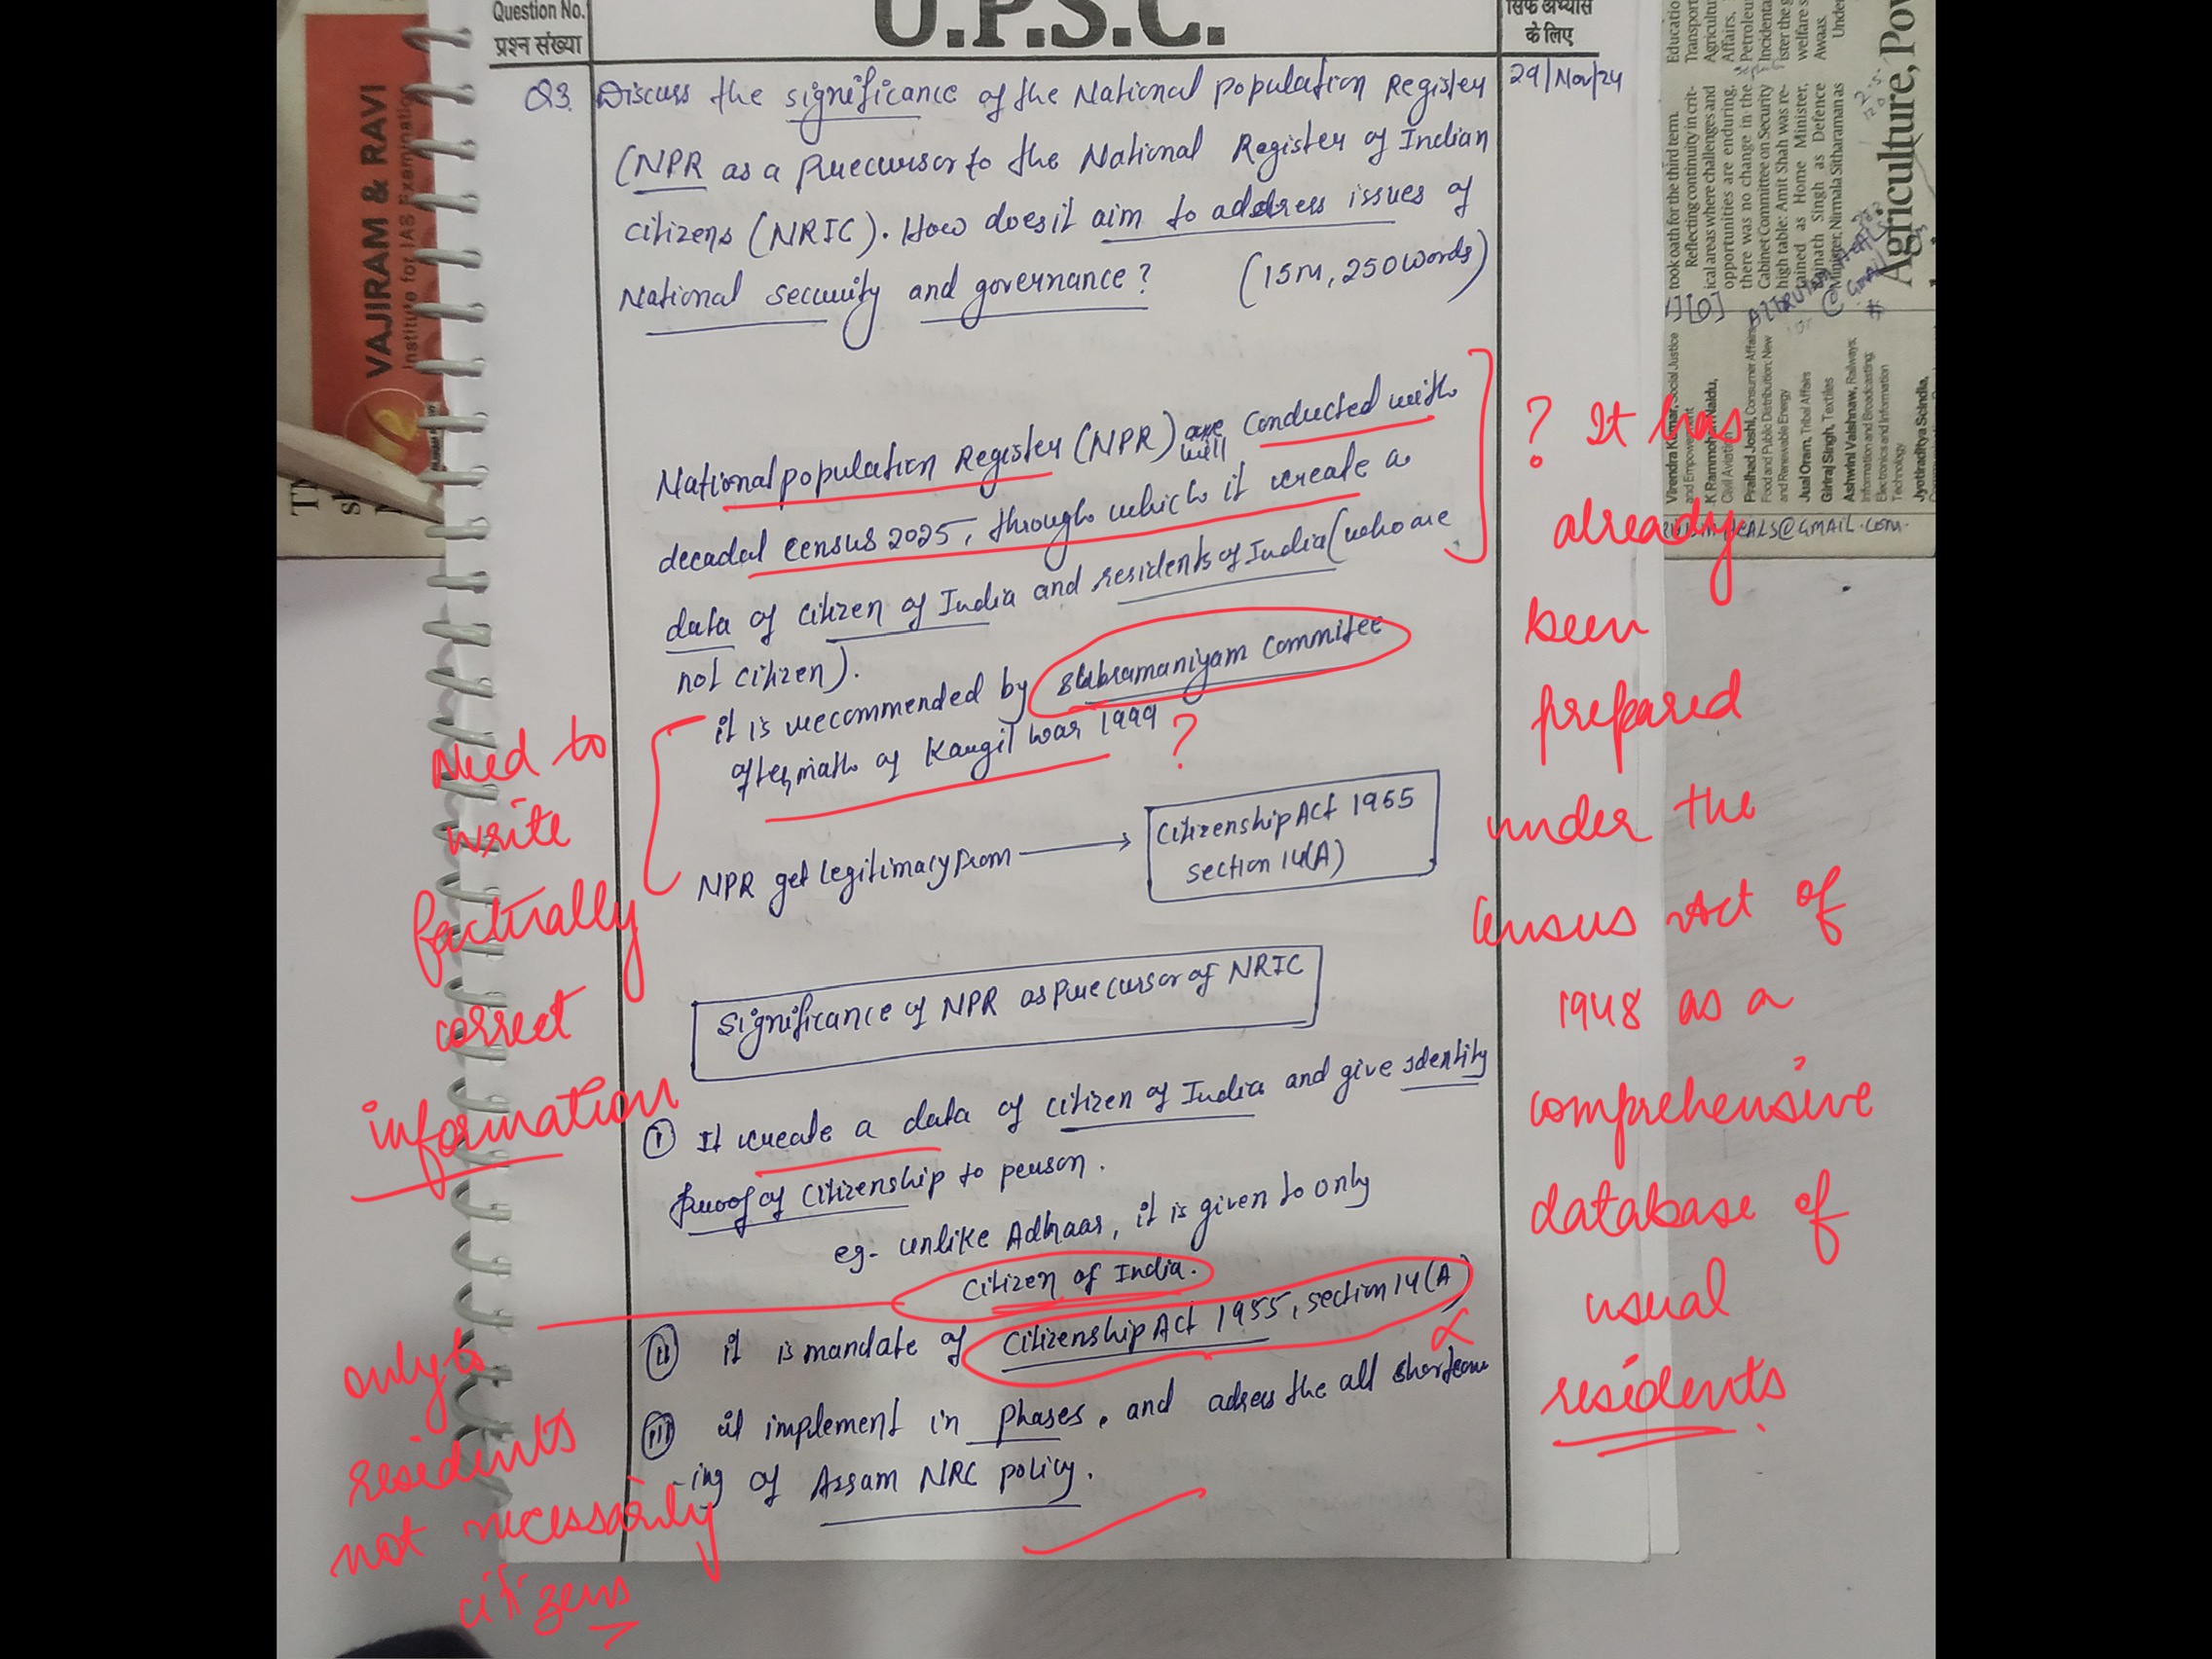 Question No.
प्रश्न संख्या
U.P.S.C.
सिर्फ अभ्यास
के लिए
Q3. Discuss the significance of the National population Register
29/Nov/24
(NPR as a precursor to the National Register of Indian
citizens (NRIC). How does it aim to address issues of
National security and governance? (15M, 250 words)
National population Register (NPR) are will conducted with
decadal census 2025, through which it create a
data of citizen of India and residents of India (who are
not citizen).
it is recommended by Subramaniyam Commitee
aftermath of Kargil war 1999 ?
NPR get legitimacy from → Citizenship Act 1955
section 14(A)
Significance of NPR as precursor of NRIC
① It create a data of citizen of India and give identity
proof of citizenship to person.
eg- unlike Adhaar, it is given to only
citizen of India.
(ii) it is mandate of Citizenship Act 1955, section 14(A
(iii) it implement in phases, and adress the all shortcom
-ing of Assam NRC policy.
Need to
write
factually
correct
information
only to
residents
not necessarily
citizens
? It has
already
been
prepared
under the
Census Act of
1948 as a
comprehensive
database of
usual
residents.
VAJIRAM & RAVI
Institute for IAS Examination
took oath for the third term.
Reflecting continuity in crit-
ical areas where challenges and
opportunities are enduring,
there was no change in the
Cabinet Committee on Security
high table: Amit Shah was re-
tained as Home Minister,
Rajnath Singh as Defence
Minister, Nirmala Sitharaman as
Agriculture, Pow
Virendra Kumar, Social Justice
and Empowerment
K Rammohan Naidu,
Civil Aviation
Pralhad Joshi, Consumer Affairs
Food and Public Distribution; New
and Renewable Energy
Jual Oram, Tribal Affairs
Giriraj Singh, Textiles
Ashwini Vaishnaw, Railways;
Information and Broadcasting;
Electronics and Information
Technology
Jyotiraditya Scindia,